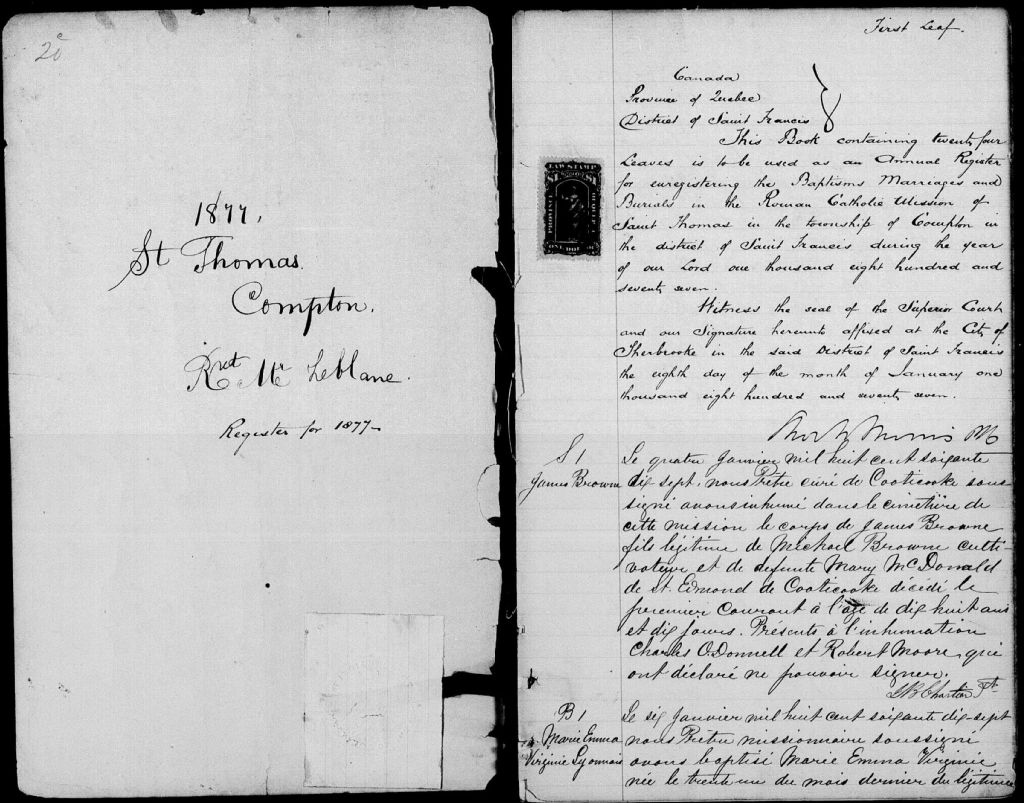 20c
1877.
St Thomas.
Compton.
Rvd Mr Leblanc.
Register for 1877
First Leaf.
Canada
Province of Quebec
District of Saint Francis
This Book containing twenty four
Leaves is to be used as an Annual Register
for enregistering the Baptisms Marriages and
Burials in the Roman Catholic Mission of
Saint Thomas in the township of Compton in
the district of Saint Francis during the year
of our Lord one thousand eight hundred and
seventy seven.
Witness the seal of the Superior Court
and our Signature hereunto affixed at the City of
Sherbrooke in the said District of Saint Francis
the eighth day of the month of January one
thousand eight hundred and seventy seven.
LAW STAMP
PROVINCE
QUEBEC
ONE DOL
S 1
James Browne
Le quatre janvier mil huit cent soixante
dix sept, nous Prêtre curé de Cooticooke sous-
signé avons inhumé dans le cimetière de
cette mission le corps de James Browne
fils légitime de Michael Browne culti-
vateur et de defunte Mary McDonald
de St. Edmond de Cooticooke décédé le
premier courant à l'age de dix huit ans
et dix jours. Présents à l'inhumation
Charles O.Donnell et Robert Moore, qui
ont déclaré ne pouvoir signer.
Chartier Pt.
B 1
Marie Emma
Virginie Lyonnais
Le six janvier mil huit cent soixante dix-sept
nous Prêtre missionnaire soussigné
avons baptisé Marie Emma Virginie
née le trente un du mois dernier du légitime